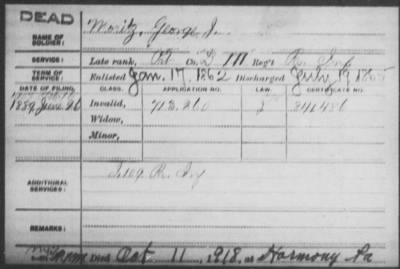 DEAD
NAME OF SOLDIER: Moritz, George J.
SERVICE: Late rank, Pvt Co. D, 111 Reg't Pa. Inf
TERM OF SERVICE: Enlisted Jan. 17, 1862 Discharged July 19, 1865
DATE OF FILING. CLASS. APPLICATION NO. LAW. CERTIFICATE NO.
1889 June 26 Invalid, 713,260
Widow,
Minor,
ADDITIONAL SERVICES:
REMARKS:
Died Oct 11, 1918, at Harmony Pa